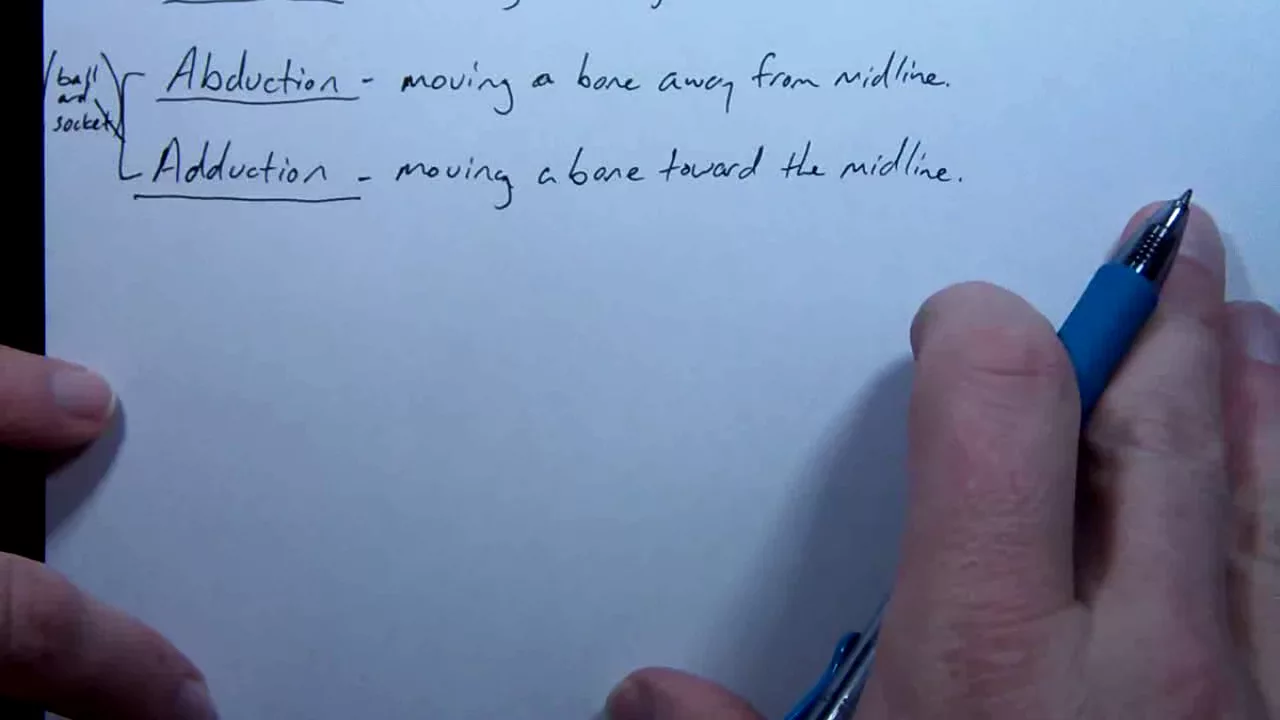 (ball and socket)
Abduction - moving a bone away from midline.
Adduction - moving a bone toward the midline.